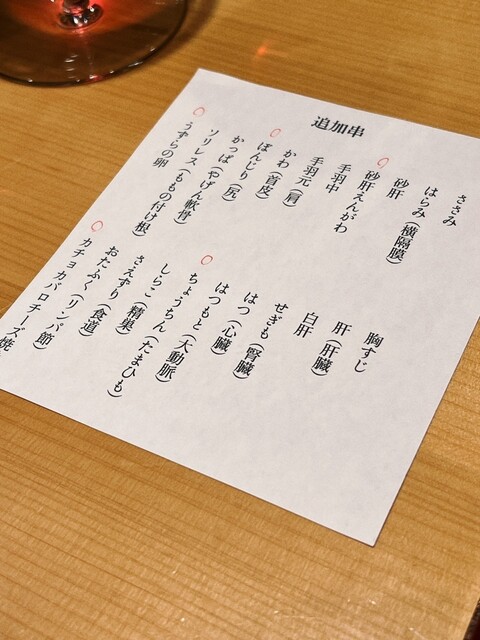 追加串
ささみ
はらみ(横隔膜)
砂肝
砂肝えんがわ
手羽中
手羽元(肩)
かわ(首皮)
ぼんじり(尻)
かっぱ(やげん軟骨)
ソリレス(ももの付け根)
うずらの卵
胸すじ
肝(肝臓)
白肝
せぎも(腎臓)
はつ(心臓)
はつもと(大動脈)
ちょうちん(たまひも)
しらこ(精巣)
さえずり(食道)
おたふく(リンパ節)
カチョカバロチーズ焼